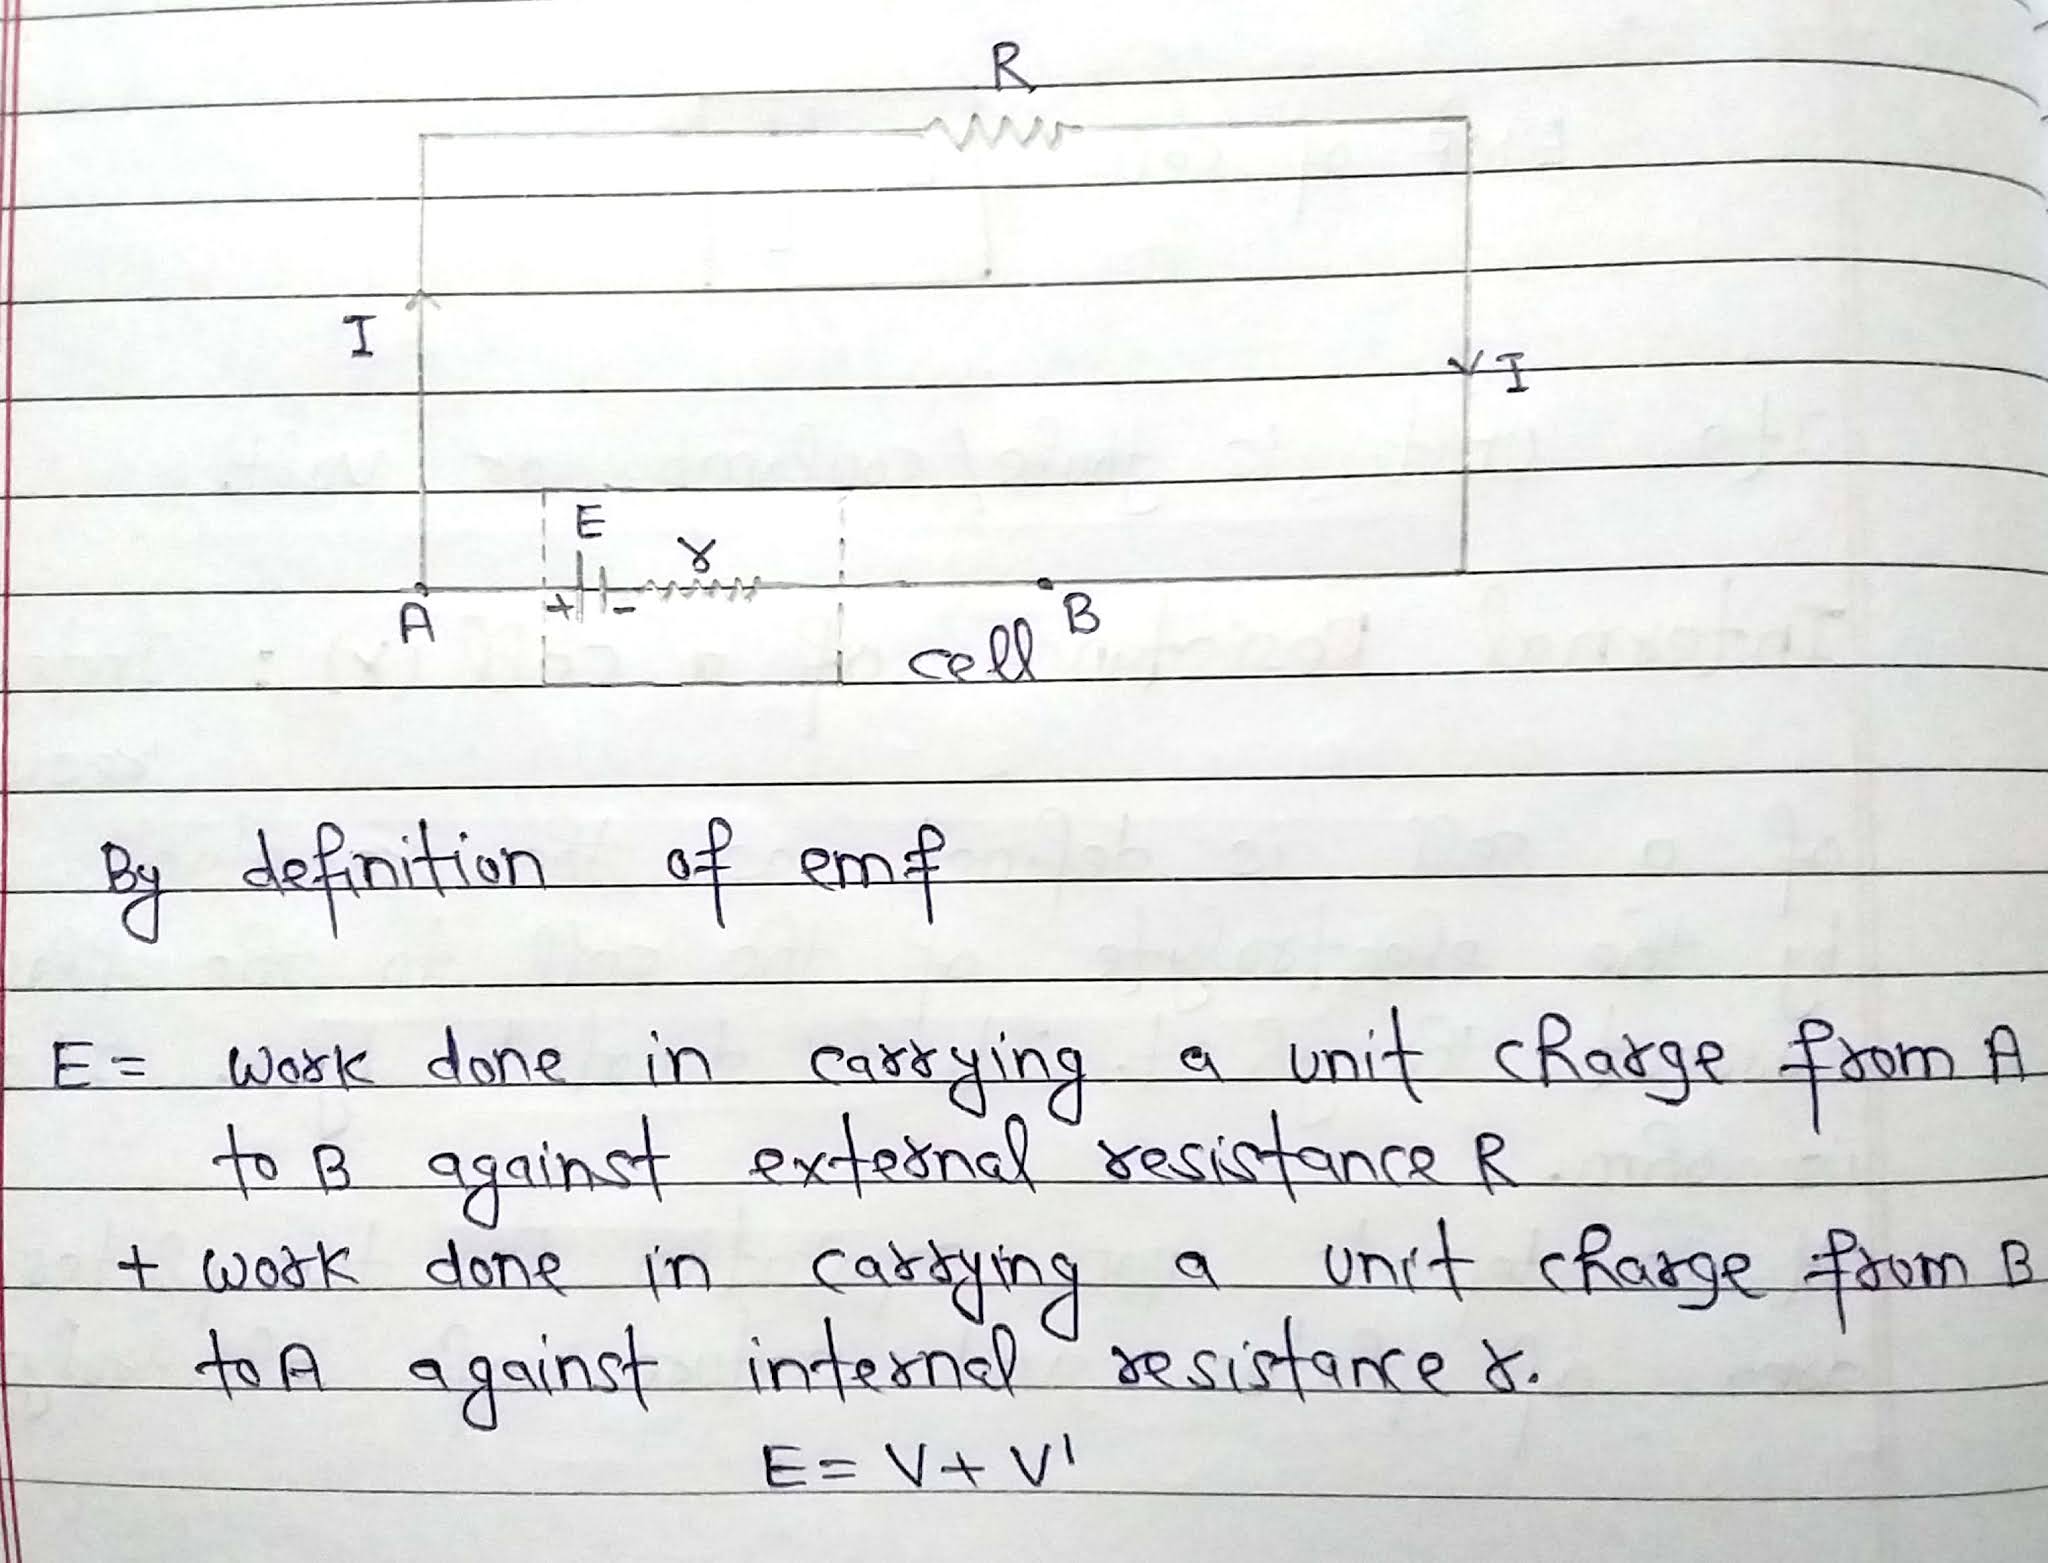 R
I
I
E
r
+ -
A
B
cell
By definition of emf
E = work done in carrying a unit charge from A
to B against external resistance R
+ work done in carrying a unit charge from B
to A against internal resistance r.
E = V + V'